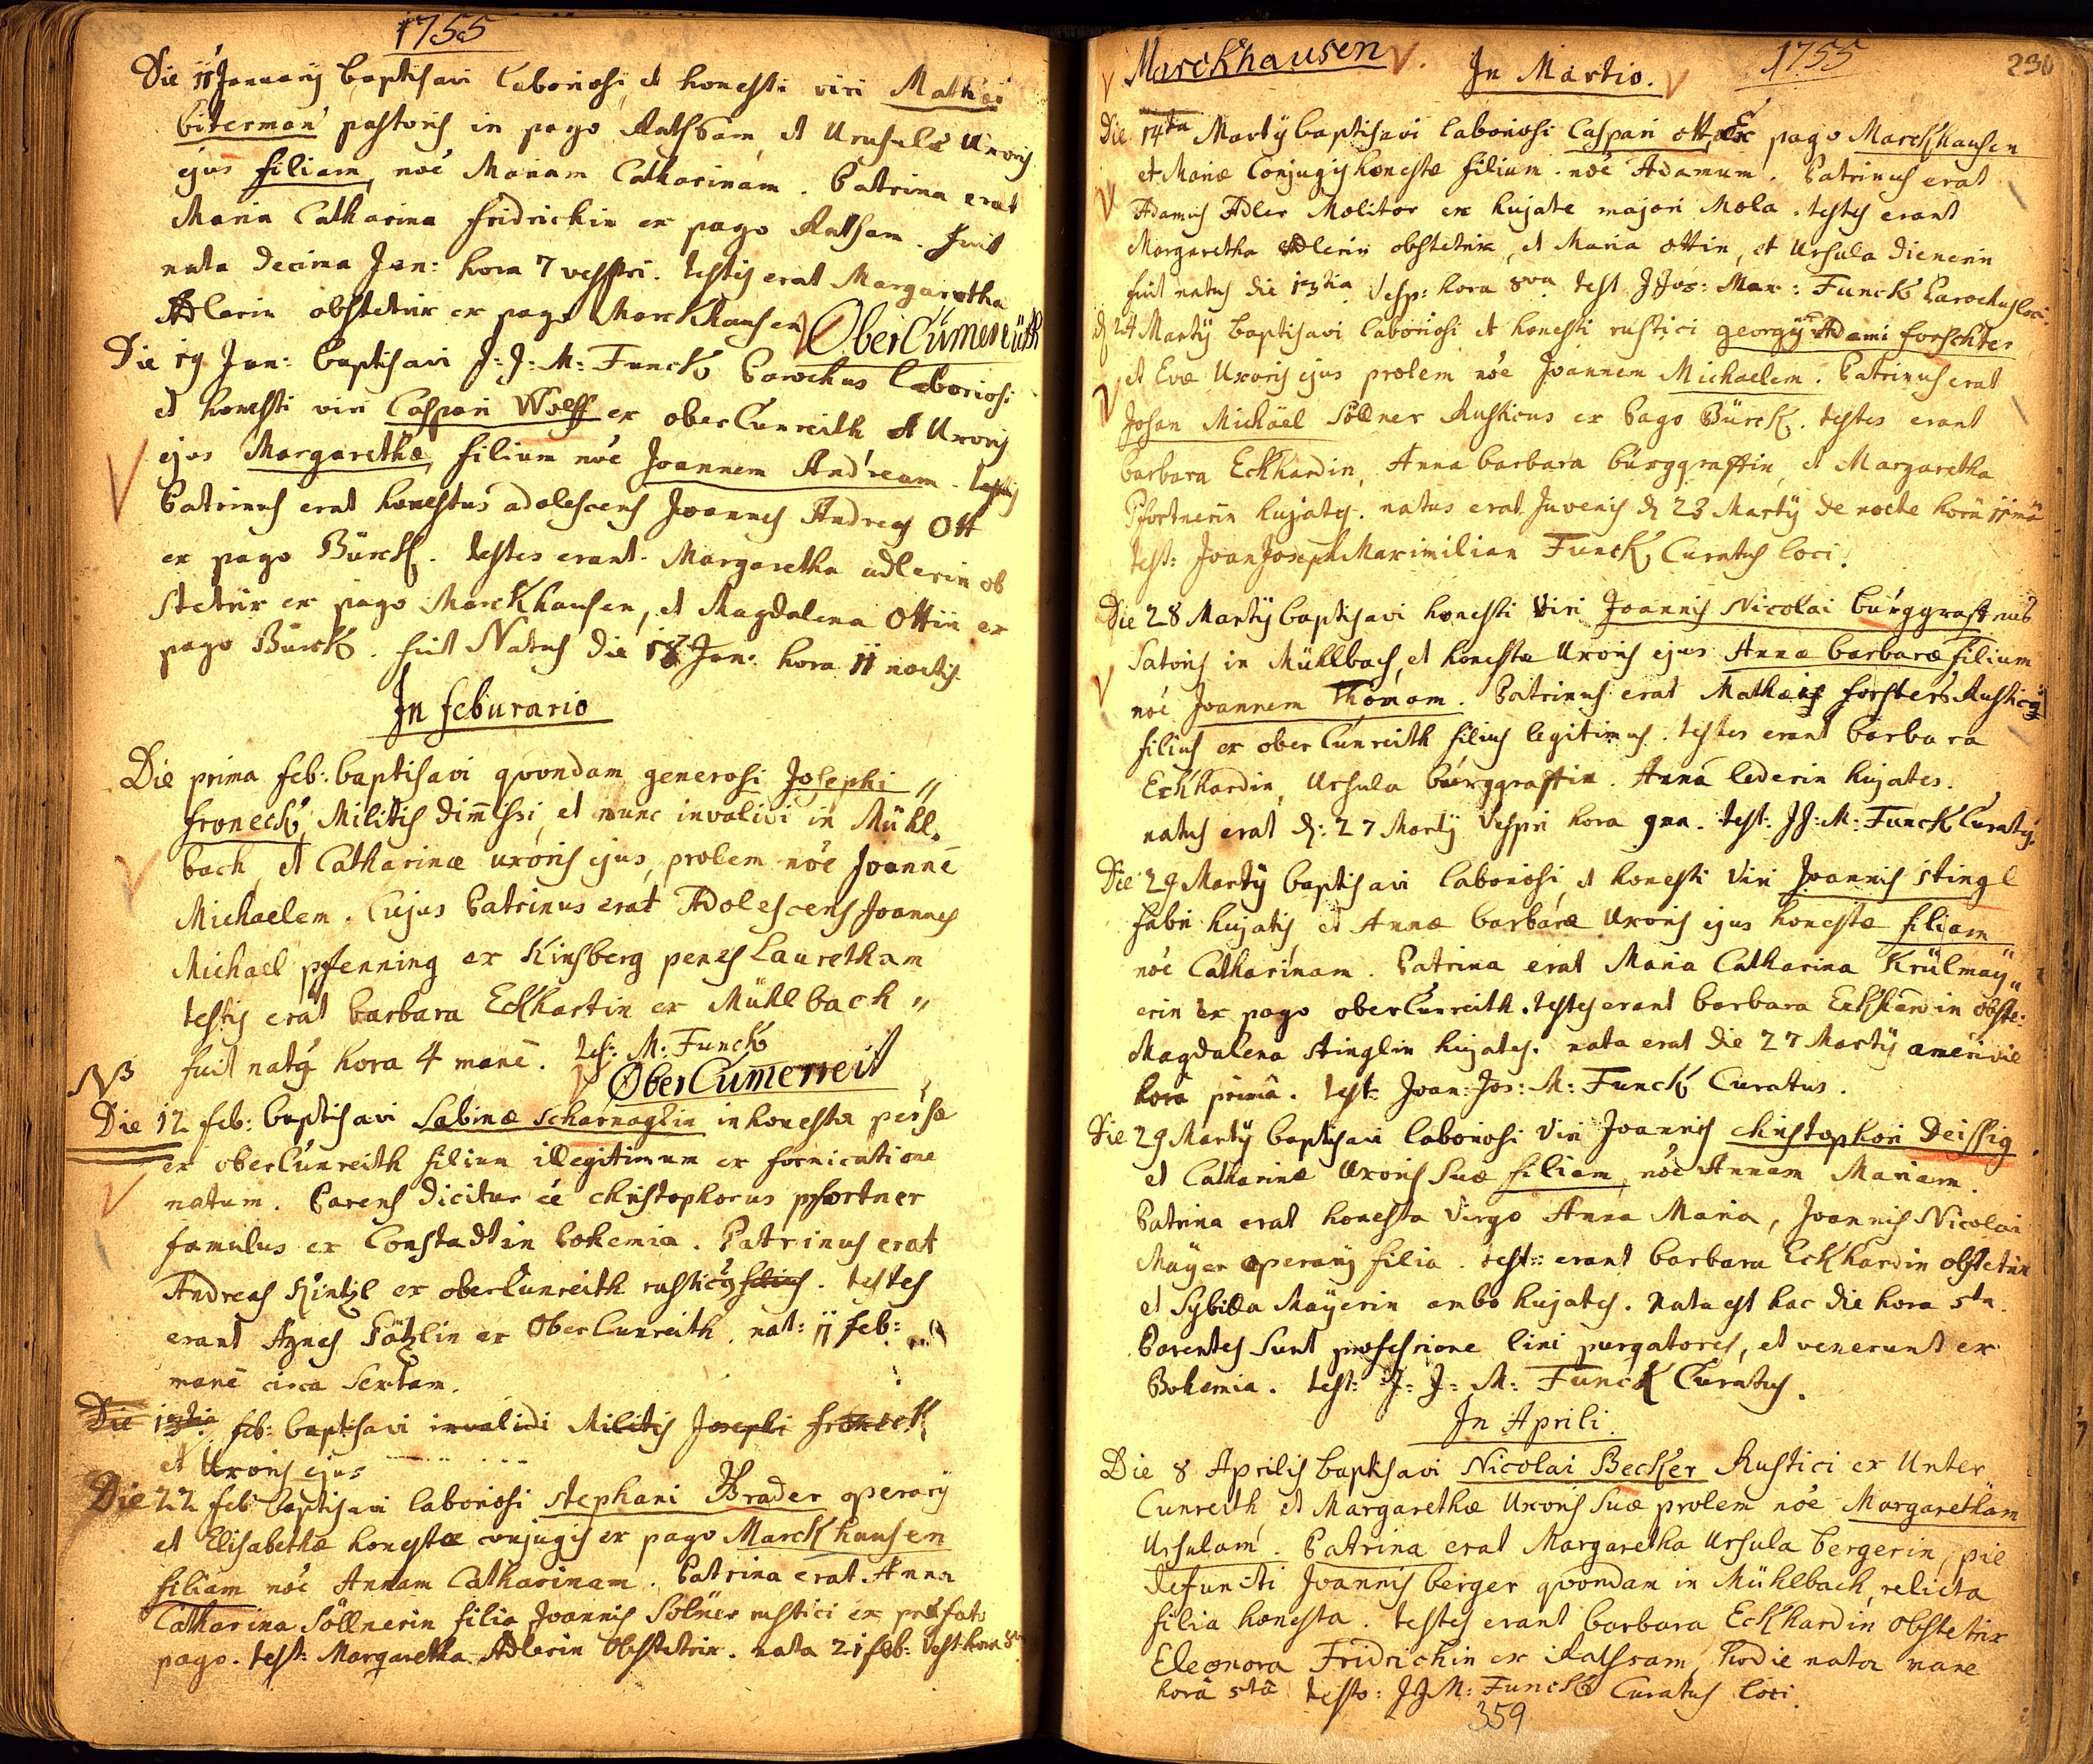 1755
Die 11 Januarij baptisavi laboriosi, et honesti viri Mathæi
biterman pastoris in pago Rathsam, et Ursulæ Uxoris
ejus filiam, noe Mariam Catharinam. Patrina erat
Maria Catharina fridrichin ex pago Rathsam. fuit
nata decima Jan: hora 7 vesptri. testis erat Margaretha
Adlerin obstetrix ex pago Marckhausen
OberCumereüth
Die 19 Jan: baptisavi J: J: M: Funck Parochus laboriosi
et honesti viri Caspari Wolff ex oberCunreith et Uxoris
ejus Margarethæ, filium noe Joannem Andream.
Patrinus erat honestus adolescens Joannes Andreas Ott
ex pago Bürck. testes erant Margaretha adlerin ob
stetrix ex pago Marckhausen, et Magdalena Ottin ex
pago Bürck. fuit Natus die 18 Jan: hora 11 noctis.
In feburario
Die prima feb: baptisavi qvondam generosi Josephi "
froneck, Militis dimissi, et nunc invalivi in Mühl-
bach, et Catharinæ uxoris ejus, prolem noe Joanne
Michaelem. Cujus Patrinus erat Adolescens Joannes
Michael pfenning ex Kinsberg penes Lauretham
testis erat barbara Eckhartin ex Mühlbach "
fuit natq hora 4 mane. tes: M: Funck
NB
OberCumerreit
Die 12 feb: baptisavi Sabinæ scharnaglin inhonestæ persæ
ex oberCunreith filium illegitimum ex fornicatione
natum. Parens dicitur ee christophorus pfortner
famulus ex Constadt in bohemia. Patrinus erat
Andreas Kintzl ex oberCunreith rusticq filius. testes
erant Agnes Götzlin ex OberCunreith. nat: 11 feb:
mane circa sextam.
Die 13tia feb: baptisavi invalidi Militis Josephi froneck
et Uxoris ejus
Die 22 feb baptisavi laboriosi stephani Brader operarij
et Elisabethæ honestæ conjugis ex pago Marckhausen
filiam noe Annam Catharinam. Patrina erat Anna
Catharina Söllnerin filia Joannis Solner rustici ex præfato
pago. test: Margaretha Adlerin Obstetrix. nata 21 feb: Vest: hora 8va
Marckhausen In Martio. 1755 236
Die 14ta Martij baptisavi laboriosi Caspari ott, Ex pago Marckhausen
et Mariæ Conjugis honestæ filium noe Adamum. Patrinus erat
Adamus Adler Molitor ex hujate majori Mola. testes erant
Margaretha Adlerin obstetrix, et Maria ottin, et Ursula dienerin
fuit natus die 13tia Vesp: hora 8va test J Jos: Max: Funck Parochus loci.
d 24 Martij baptisavi laboriosi et honesti rustici georgij Adami forschter
et Evæ Uxoris ejus prolem noe Joannem Michaelem. Patrinus erat
Johan Michäel Söllner Rusticus ex Pago Bürck. testes erant
barbara Eckhardin, Anna barbara bürggraffin, et Margaretha
Pfortnerin hujates. natus erat Juvenis d 23 Martij de nocte hora 11ma
test: Joan Joseph Maximilian Funck, Curatus loci.
Die 28 Martij baptisavi honesti Viri Joannis Nicolai bürggraff nus
Satoris in Mühlbach, et honestæ Uxoris ejus Annæ barbaræ filium
noe Joannem Thomam. Patrinus erat Mathæus forsters Rustici
filius ex oberCunreith filius legitimus. testes erant barbara
Eckhardin, Ursula bürggraffin. Anna lederin hujates.
natus erat d: 27 Martij Vespri hora 9na. test: J J: M: Funck Curatq.
Die 29 Martij baptisavi laboriosi, et honesti Viri Joannis stingl
fabri hujatis, et Annæ barbaræ Uxoris ejus honestæ filiam
noe Catharinam. Patrina erat Maria Catharina Krülmaÿ"
erin ex pago oberCunreith. testes erant barbara Eckhardin obste:
Magdalena stinglin hujates. nata erat die 27 Martij
hora prima. test: Joan: Jos: M: Funck Curatus.
Die 29 Martij baptisavi laboriosi Viri Joannis christophori Deissig
et Catharinæ Uxoris suæ filiam, noe Annam Mariam.
Patrina erat honesta Virgo Anna Maria, Joannis Nicolai
Maÿer operarij filia. test: erant barbara Eckhardin obstetrix
et Sybilla Maÿerin ambo hujates. Nata est hac die hora 5ta.
Parentes sunt professione lini purgatores, et venerunt ex
Bohemia. test: J: J: M: Funck Curatus.
In Aprili.
Die 8 Aprilis baptisavi Nicolai Becker Rustici ex Unter
Cunreith, et Margarethæ Uxoris suæ prolem noe Margaretham
Ursulam. Patrina erat Margaretha Ursula bergerin, pie
defuncti Joannis berger qvondam in Mühlbach, relicta
filia honesta. testes erant barbara Eckhardin Obstetrix
Eleonora Fridrichin ex Rathsam, hodie nata mane
hora 5ta testo: J J M: Funck Curatus loci.
359